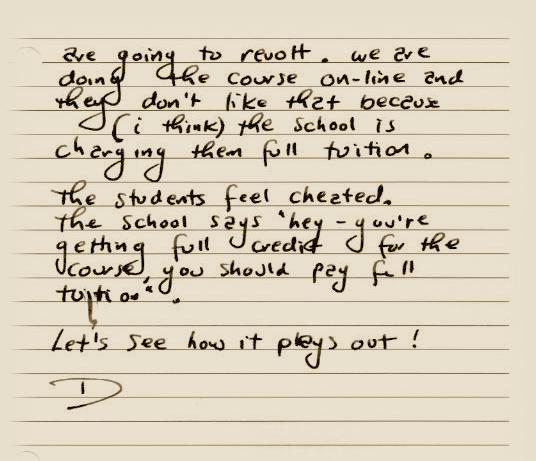 are going to revolt. we are
doing the course on-line and
they don't like that because
(i think) the school is
charging them full tuition.
The students feel cheated.
The school says "hey - you're
getting full credit for the
course, you should pay full
tuition".
Let's see how it plays out!
D